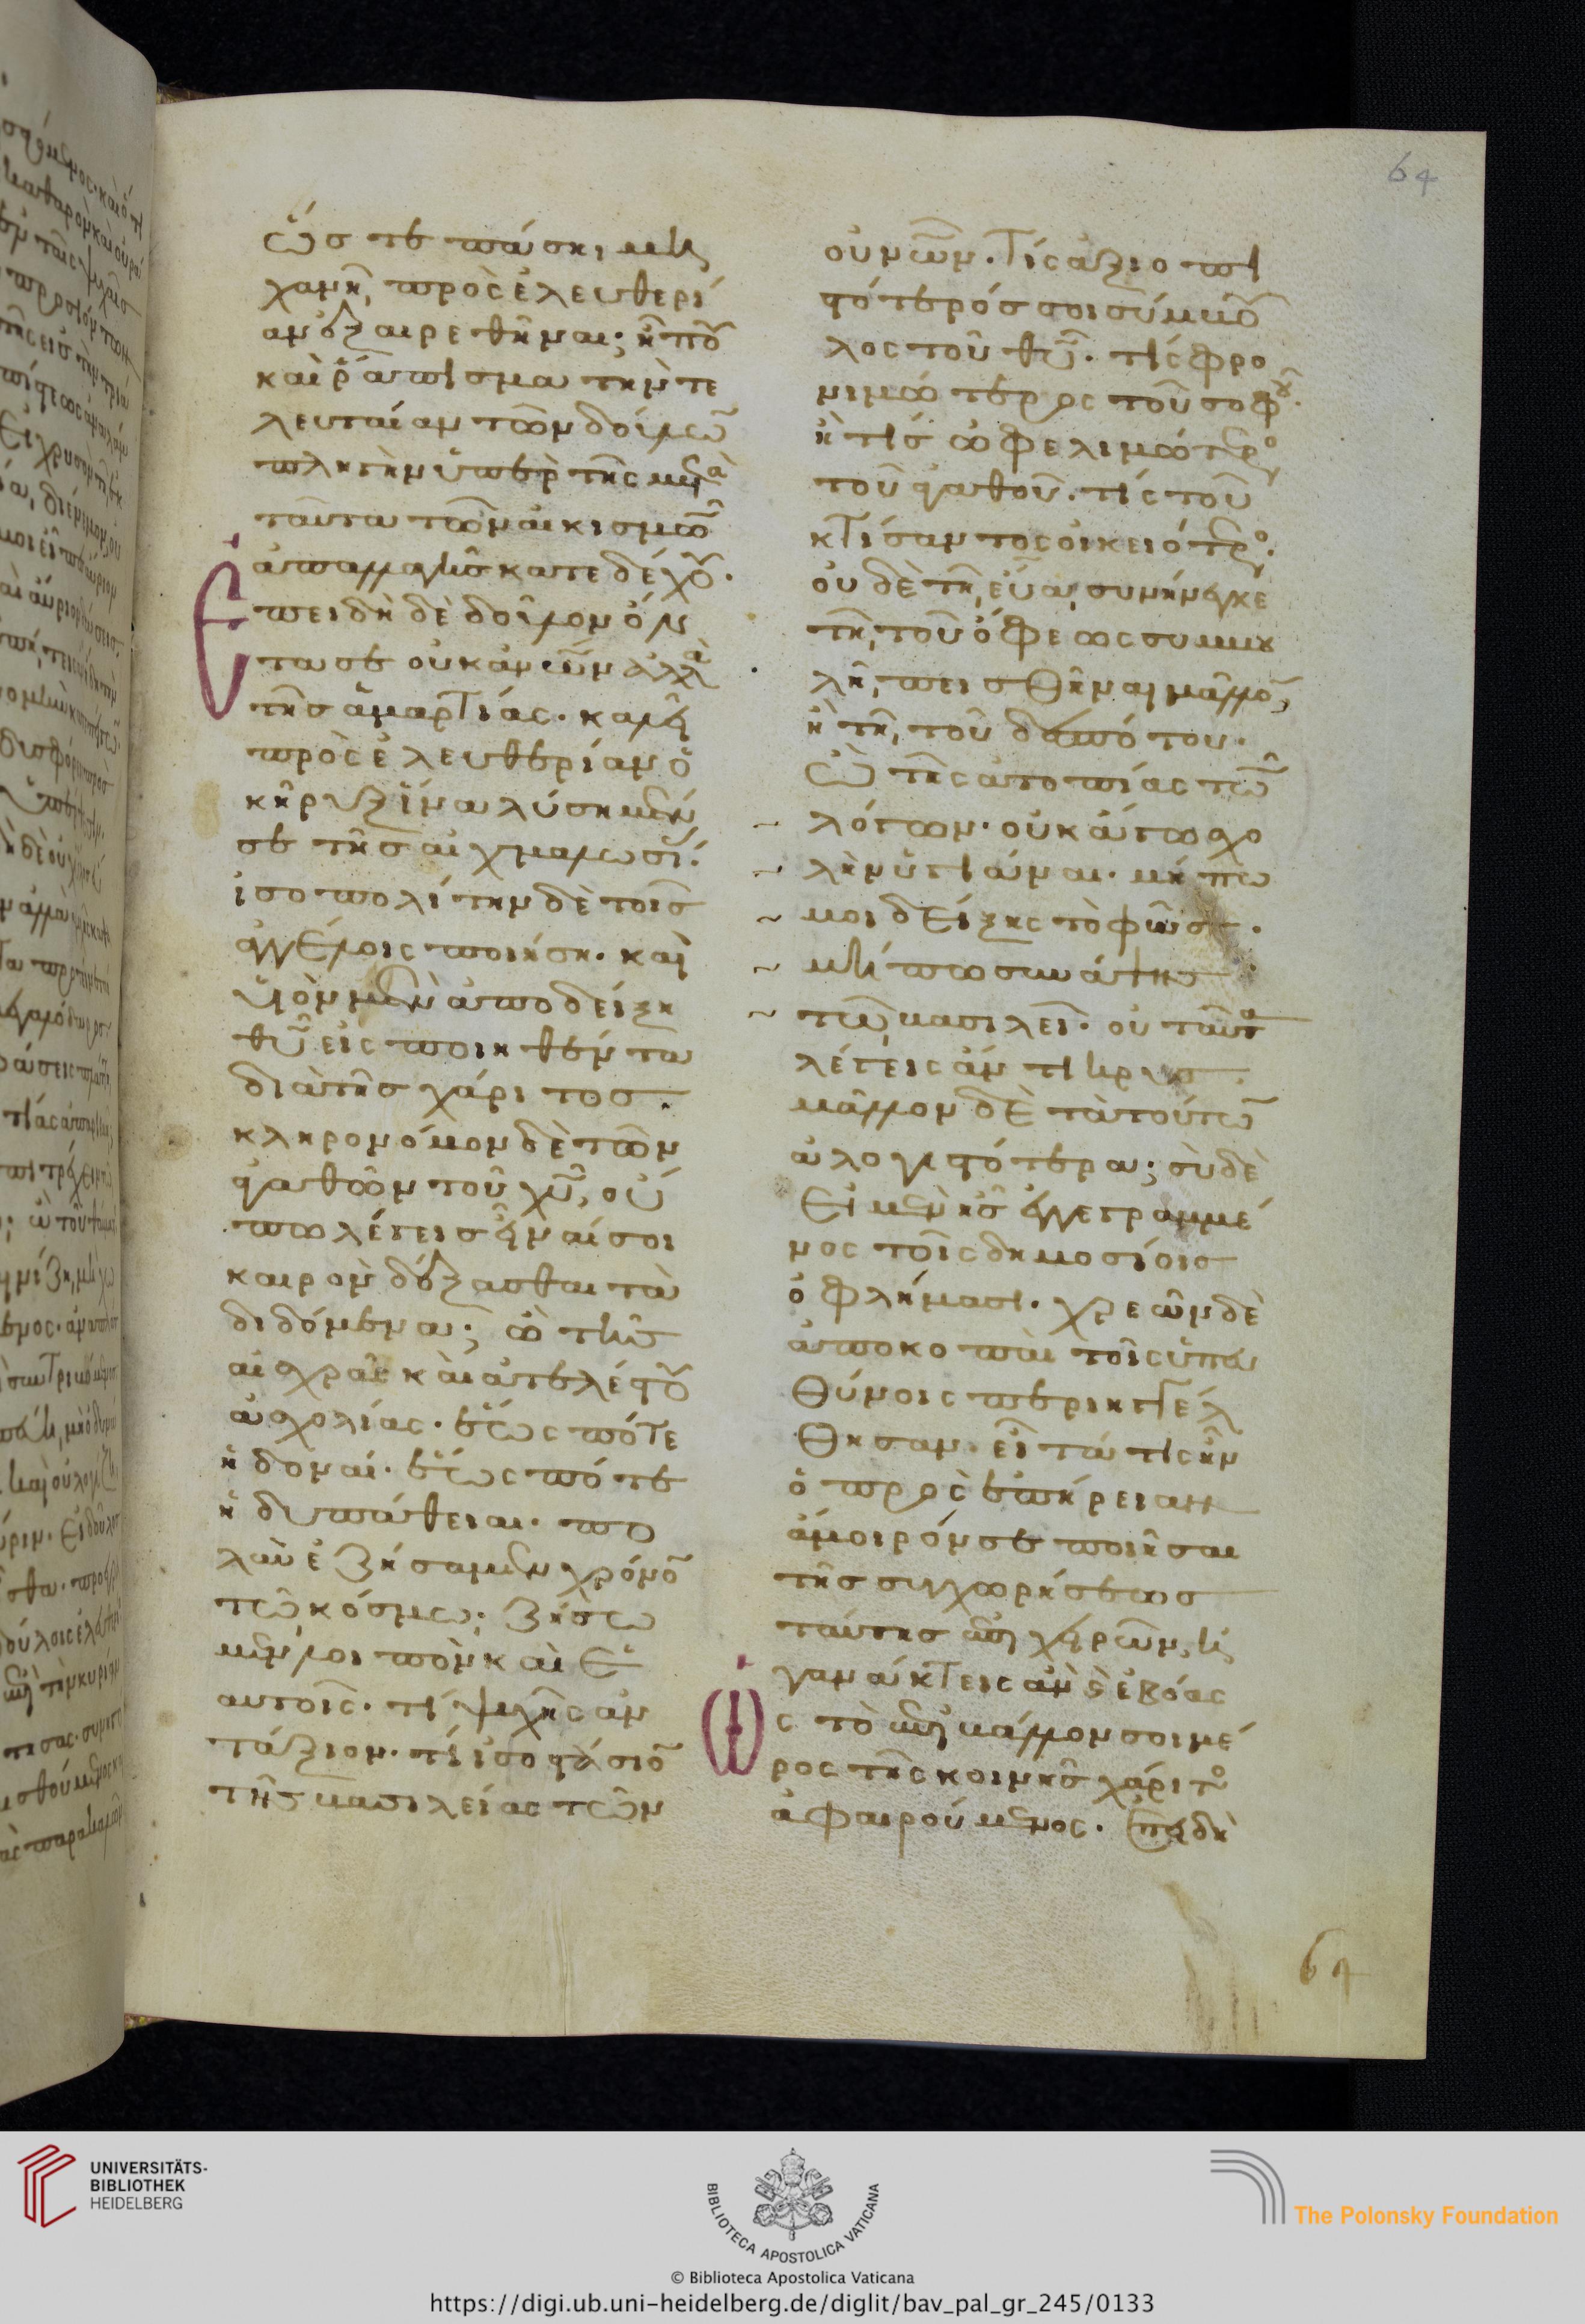 ὥς τε πάσηι μη
χανῆι πρὸς ἐλευθερί
αν ἐξαιρεθῆναι; ἤ που
καὶ ῥάπισμα τὴν τε
λευταίαν τῶν δούλων
πληγὴν ὑπὲρ τῆς μετὰ
ταῦτα τῶν αἰκισμῶν
ἀπαλλαγῆς κατεδέχου.
Ἐπειδὴ δὲ δοῦλον ὄν
τα σε οὐκ ἀνων ἀλλὰ
τῆς ἁμαρτίας. καλεῖ
πρὸς ἐλευθερίαν ὁ
κῆρυξ ἵνα λύση μέν
σε τῆς αἰχμαλωσί.
ἰσοπολίτην δὲ τοῖς
ἀγγέλοις ποιήση. καὶ
υἱὸν μὲν ἀποδείξη
θυ εἰσποιηθέντα
διὰ τῆς χάριτος.
κληρονόμον δὲ τῶν
ἀγαθῶν τοῦ χυ, οὔ
πω λέγεις εἶναί σοι
καιρὸν δέξασθαι τὰ
διδόμενα; ὢ τῆς
αἰσχρᾶς καὶ ἀτελέστου
ἀσχολίας. ἕως πότε
ἡδοναί. ἕως πότε
ἡδυπάθειαι. πο
λὺν ἐζήσαμεν χρόνον
τῶι κόσμω. ζήσω
μεν λοιπὸν καὶ ἑ
αυτοῖς. τί ψυχῆς ἀν
τάξιον. τί ἰσοστάσιον
τῆς βασιλείας τῶν
οὐνῶν. Τίς ἀξιοπι
στότερός σοι σύμβου
λος τοῦ θυ. τίς φρο
νιμώτερος τοῦ σοφοῦ.
ἢ τίς ὠφελιμώτερο
τοῦ ἀγαθοῦ. τίς τοῦ
κτίσαντος οἰκειότερο.
οὐδὲ τῆι εὔαι συνήνεγκε
τῆι τοῦ ὄφεως συμβου
λῆι πεισθῆναι μᾶλλον,
ἢ τῆι τοῦ δεσπότου.
Ὢ τῆς ἀτοπίας τῶν
λόγων. οὐκ ἄγω σχο
λὴν ὑγιᾶναι. μήπω
μοι δείξης τὸ φῶς.
μήπω συνάψης
τῶι βασιλεῖ. οὐ ταῦτα
λέγεις ἄντικρυς.
μᾶλλον δὲ τὰ τούτων
ἀλογιστότερα; σὺ δὲ
εἰ μὲν ἦς ἐγγεγραμμέ
νος τοῖς δημοσίοις
ὀφλήμασι. χρεῶν δὲ
ἀποκοπαὶ τοῖς ὑπευ
θύνοις περιηγγέλ
θησαν. εἶτά τις ἦν
ὁ πρὸς ἐπήρειαν
ἄμοιρόν σε ποιῆσαι
τῆς συγχωρήσεως
ταύτης ἐπιχειρῶν, ἠ
γανάκτεις ἂν καὶ ἐβόας
ὡς τὸ ἐπιβάλλον σοι μέ
ρος τῆς κοινῆς χάριτο
ἀφαιρούμενος. Ἐπειδὴ
64
64
UNIVERSITÄTS-
BIBLIOTHEK
HEIDELBERG
BIBLIOTECA APOSTOLICA VATICANA
The Polonsky Foundation
© Biblioteca Apostolica Vaticana
https://digi.ub.uni-heidelberg.de/diglit/bav_pal_gr_245/0133